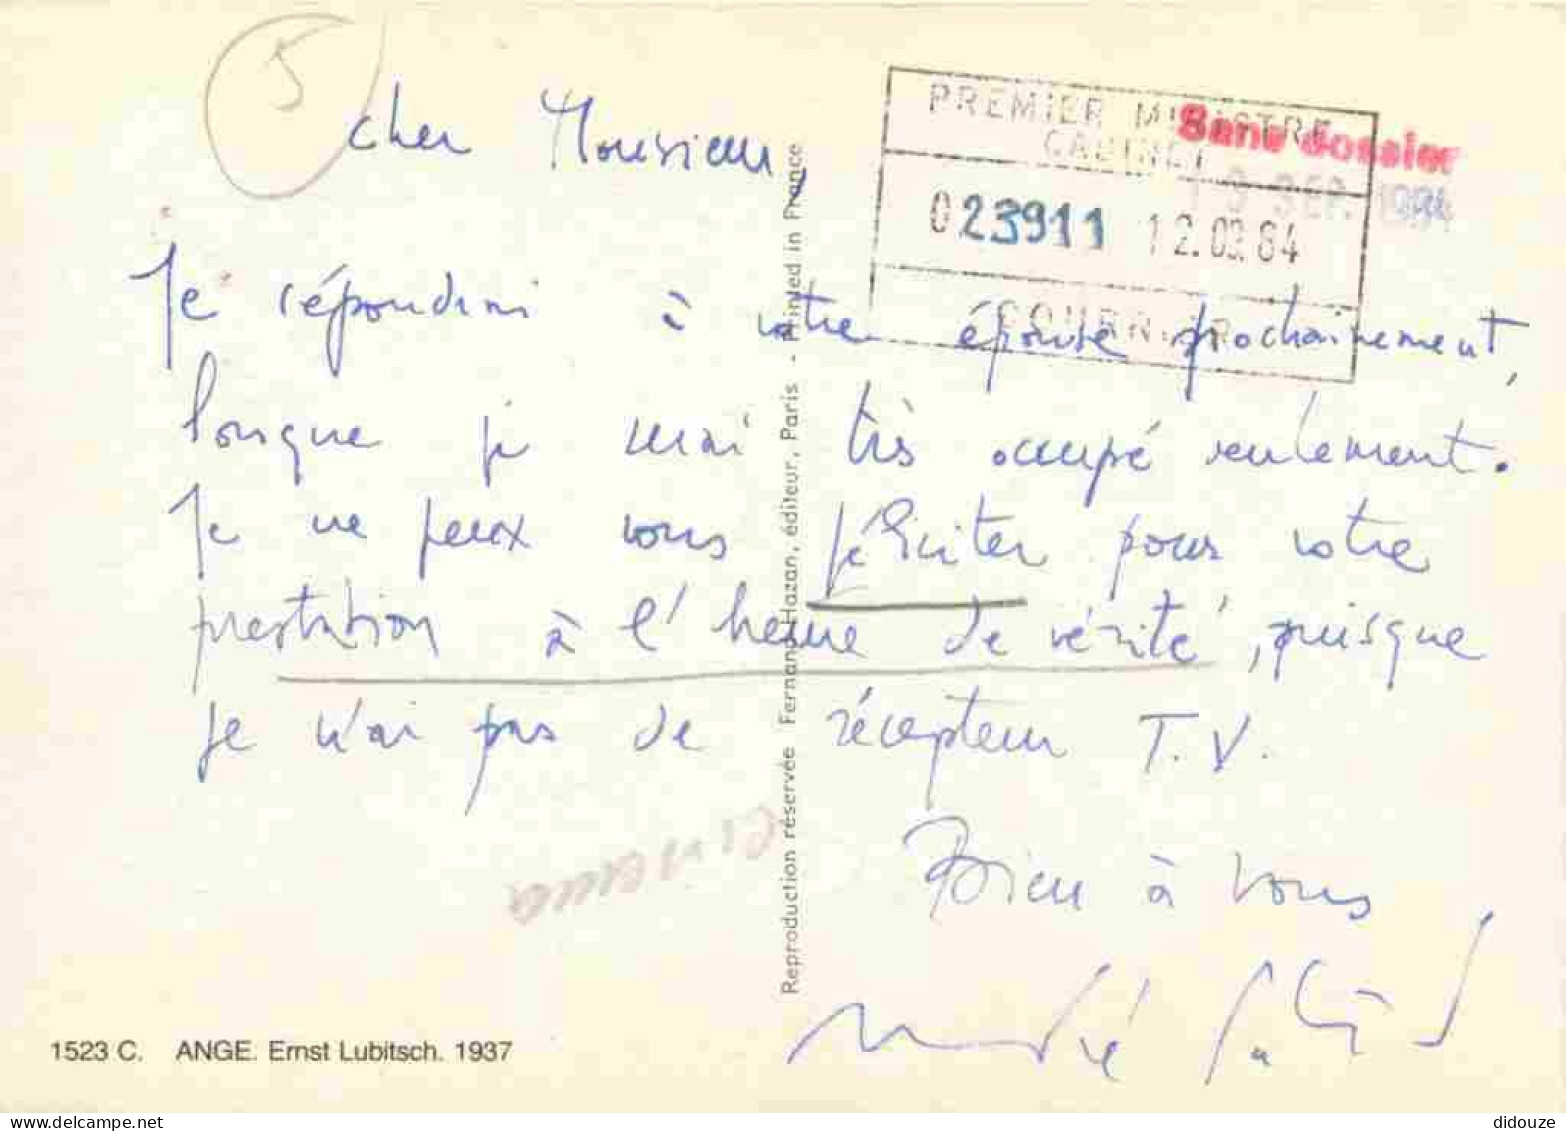 5
Cher Monsieur,
PREMIER MINISTRE
CABINET
Sans dossier
SEP. 1984
023911 12.09.84
COURRIER
Je répondrai à votre épouse prochainement,
lorsque je serai très occupé seulement.
Je ne peux vous féliciter pour votre
prestation à l'heure de vérité, puisque
je n'ai pas de récepteur T.V.
Bien à vous
cinema
Reproduction réservée Fernand Hazan, éditeur, Paris - Printed in France
1523 C. ANGE. Ernst Lubitsch. 1937
didouze